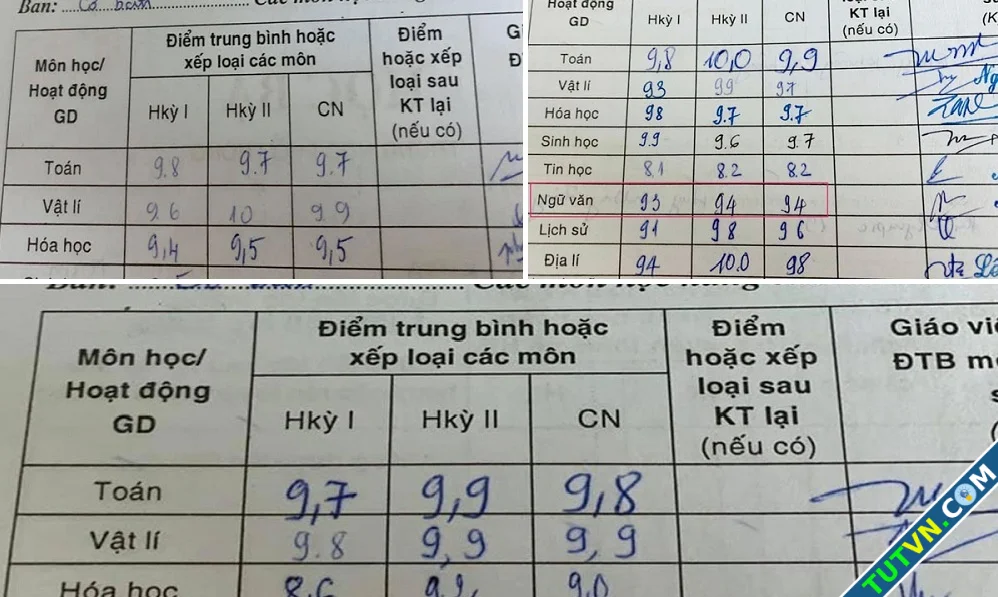 Ban: Cơ bản Các môn học
Môn học/ Hoạt động GD
Điểm trung bình hoặc xếp loại các môn
Điểm hoặc xếp loại sau KT lại (nếu có)
Hkỳ I Hkỳ II CN
Toán 9.8 9.7 9.7
Vật lí 9.6 10 9.9
Hóa học 9,4 9,5 9,5
Hoạt động GD
Hkỳ I Hkỳ II CN
KT lại (nếu có)
Toán 9,8 10,0 9,9
Vật lí 93 99 97
Hóa học 98 9.7 9.7
Sinh học 9.9 9.6 9.7
Tin học 8.1 8.2 8.2
Ngữ văn 93 94 94
Lịch sử 91 98 96
Địa lí 94 10.0 98
Môn học/ Hoạt động GD
Điểm trung bình hoặc xếp loại các môn
Điểm hoặc xếp loại sau KT lại (nếu có)
Giáo viê
ĐTB m
Hkỳ I Hkỳ II CN
Toán 9,7 9,9 9,8
Vật lí 9.8 9,9 9,9
Hóa học 8.6 9.0
TUTVN.COM